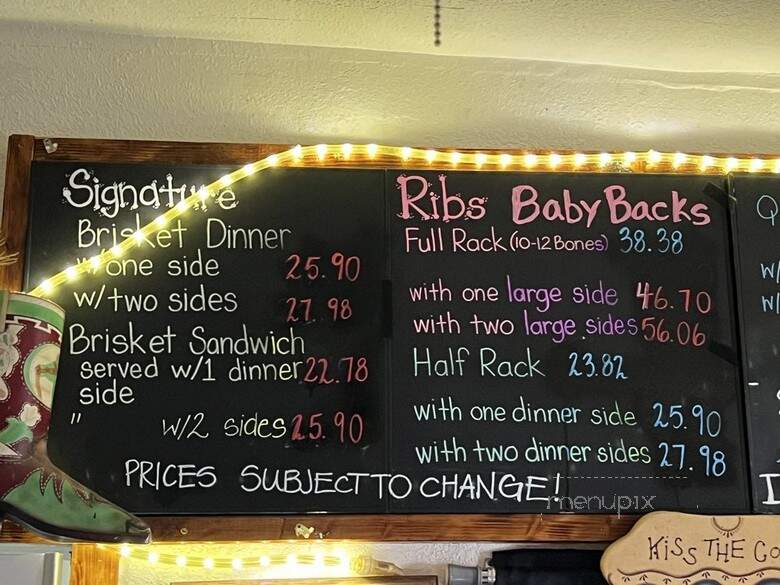 Signature
Brisket Dinner
w/one side 25.90
w/two sides 27.98
Brisket Sandwich
served w/1 dinner 22.78
side
" w/2 sides 25.90
Ribs Baby Backs
Full Rack (10-12 Bones) 38.38
with one large side 46.70
with two large sides 56.06
Half Rack 23.82
with one dinner side 25.90
with two dinner sides 27.98
PRICES SUBJECT TO CHANGE!
menupix
w/
KISS THE